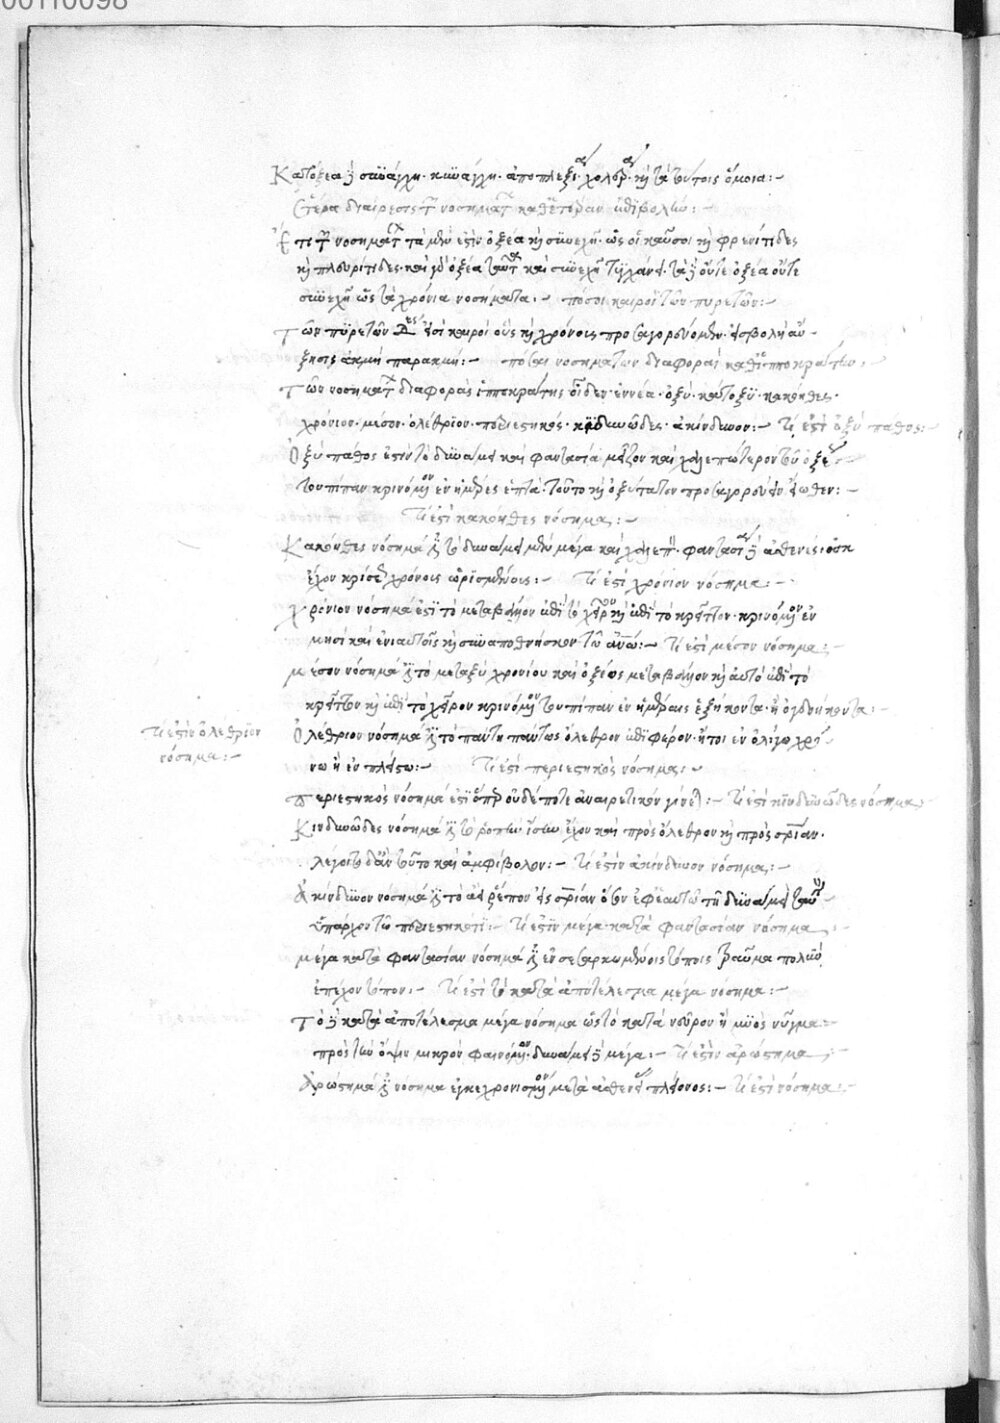 00110098
Κατόξεα δὲ συνάγχη· κυνάγχη· ἀποπληξία· χολέρα· καὶ τὰ τούτοις ὅμοια:—
ἑτέρα διαίρεσις τῶν νοσημάτων καθ' ἑτέραν ἐπιβολήν:—
Ἔτι τῶν νοσημάτων τὰ μὲν ἐστὶν ὀξέα καὶ συνεχῆ· ὡς οἱ καῦσοι καὶ φρενίτιδες
καὶ πλευρίτιδες· καὶ γὰρ ὀξέα ταῦτα καὶ συνεχῆ τυγχάνει· τὰ δὲ οὔτε ὀξέα οὔτε
συνεχῆ ὡς τὰ χρόνια νοσήματα:— πόσοι καιροὶ τῶν πυρετῶν:—
Τῶν πυρετῶν δ̅ εἰσὶ καιροὶ οὓς καὶ χρόνους προσαγορεύομεν· εἰσβολὴ αὔ-
ξησις ἀκμὴ παρακμή:— πόσαι νοσημάτων διαφοραὶ καθ' ἱπποκράτην:
Τῶν νοσημάτων διαφορὰς ἱπποκράτης οἶδεν ἐννέα· ὀξύ· κατοξύ· κακόηθες·
χρόνιον· μέσον· ὀλέθριον· περιεστηκός· κινδυνῶδες· ἀκίνδυνον:— τί ἐστὶ ὀξὺ πάθος:—
Ὀξὺ πάθος ἐστὶν τὸ δυνάμει καὶ φαντασία μεῖζον καὶ χαλεπώτερον τοῦ ὀξέος
τουπίπαν κρινόμενον ἐν ἡμέραις ἑπτά· τοῦτο καὶ ὀξύτατον προσαγορεύειν εἴωθεν:—
τί ἐστὶ κακόηθες νόσημα:—
Κακόηθες νόσημά ἐστι τὸ δυνάμει μὲν μέγα καὶ χαλεπόν· φαντασία δὲ ἀσθενές· οὐκ
ἔχον κρίσεις χρόνοις ὡρισμένοις:— τί ἐστὶ χρόνιον νόσημα:—
Χρόνιον νόσημά ἐστὶ τὸ μεταβαῖνον ἐπὶ τὸ χεῖρον καὶ ἐπὶ τὸ κρεῖττον· κρινόμενον ἐν
μησὶ καὶ ἐνιαυτοῖς καὶ συναποθνῆσκον τῷ ἀνθρώπῳ:— τί ἐστὶ μέσον νόσημα:—
Μέσον νόσημά ἐστι τὸ μεταξὺ χρονίου καὶ ὀξέως μεταβαῖνον καὶ αὐτὸ ἐπὶ τὸ
κρεῖττον καὶ ἐπὶ τὸ χεῖρον κρινόμενον τουπίπαν ἐν ἡμέραις ἑξήκοντα· ἢ ὀγδοήκοντα:—
τί ἐστὶν ὀλέθριον
νόσημα:—
Ὀλέθριον νόσημά ἐστι τὸ πάντη πάντως ὄλεθρον ἐπιφέρον· ἤτοι ἐν ὀλίγω χρό-
νω ἢ ἐν πλείω:— τί ἐστὶ περιεστηκὸς νόσημα:—
Περιεστηκὸς νόσημά ἐστὶ ὅπερ οὐδέποτε ἀναιρετικὸν γίνεται:— τί ἐστὶ κινδυνῶδες νόσημα
Κινδυνῶδες νόσημά ἐστι τὸ ῥοπὴν ἴσην ἔχον καὶ πρὸς ὄλεθρον καὶ πρὸς σωτηρίαν·
λέγοιτο δ' ἂν τοῦτο καὶ ἀμφίβολον:— τί ἐστὶν ἀκίνδυνον νόσημα:—
Ἀκίνδυνον νόσημά ἐστι τὸ ἀεὶ ῥέπον εἰς σωτηρίαν ὅσον ἐφ' ἑαυτῷ τῇ δυνάμει ταυτὸν
ὑπάρχον τῷ περιεστηκότι:— τί ἐστὶν μέγα κατὰ φαντασίαν νόσημα:—
Μέγα κατὰ φαντασίαν νόσημά ἐστι ἐν σεσαρκωμένοις τόποις τραῦμα πολὺν
ἐπέχον τόπον:— τί ἐστὶ τὸ κατὰ ἀποτέλεσμα μέγα νόσημα:—
Τὸ δὲ κατὰ ἀποτέλεσμα μέγα νόσημα ὡς τὸ κατὰ νεῦρον ἢ μυὸς νύγμα:
πρὸς τὴν ὄψιν μικρὸν φαινόμενον· δυνάμει δὲ μέγα:— τί ἐστὶν ἀρώστημα:—
Ἀρώστημά ἐστι νόσημα ἐγκεχρονισμένον μετὰ ἀσθενείας πλείονος:— τί ἐστὶ νόσημα:—